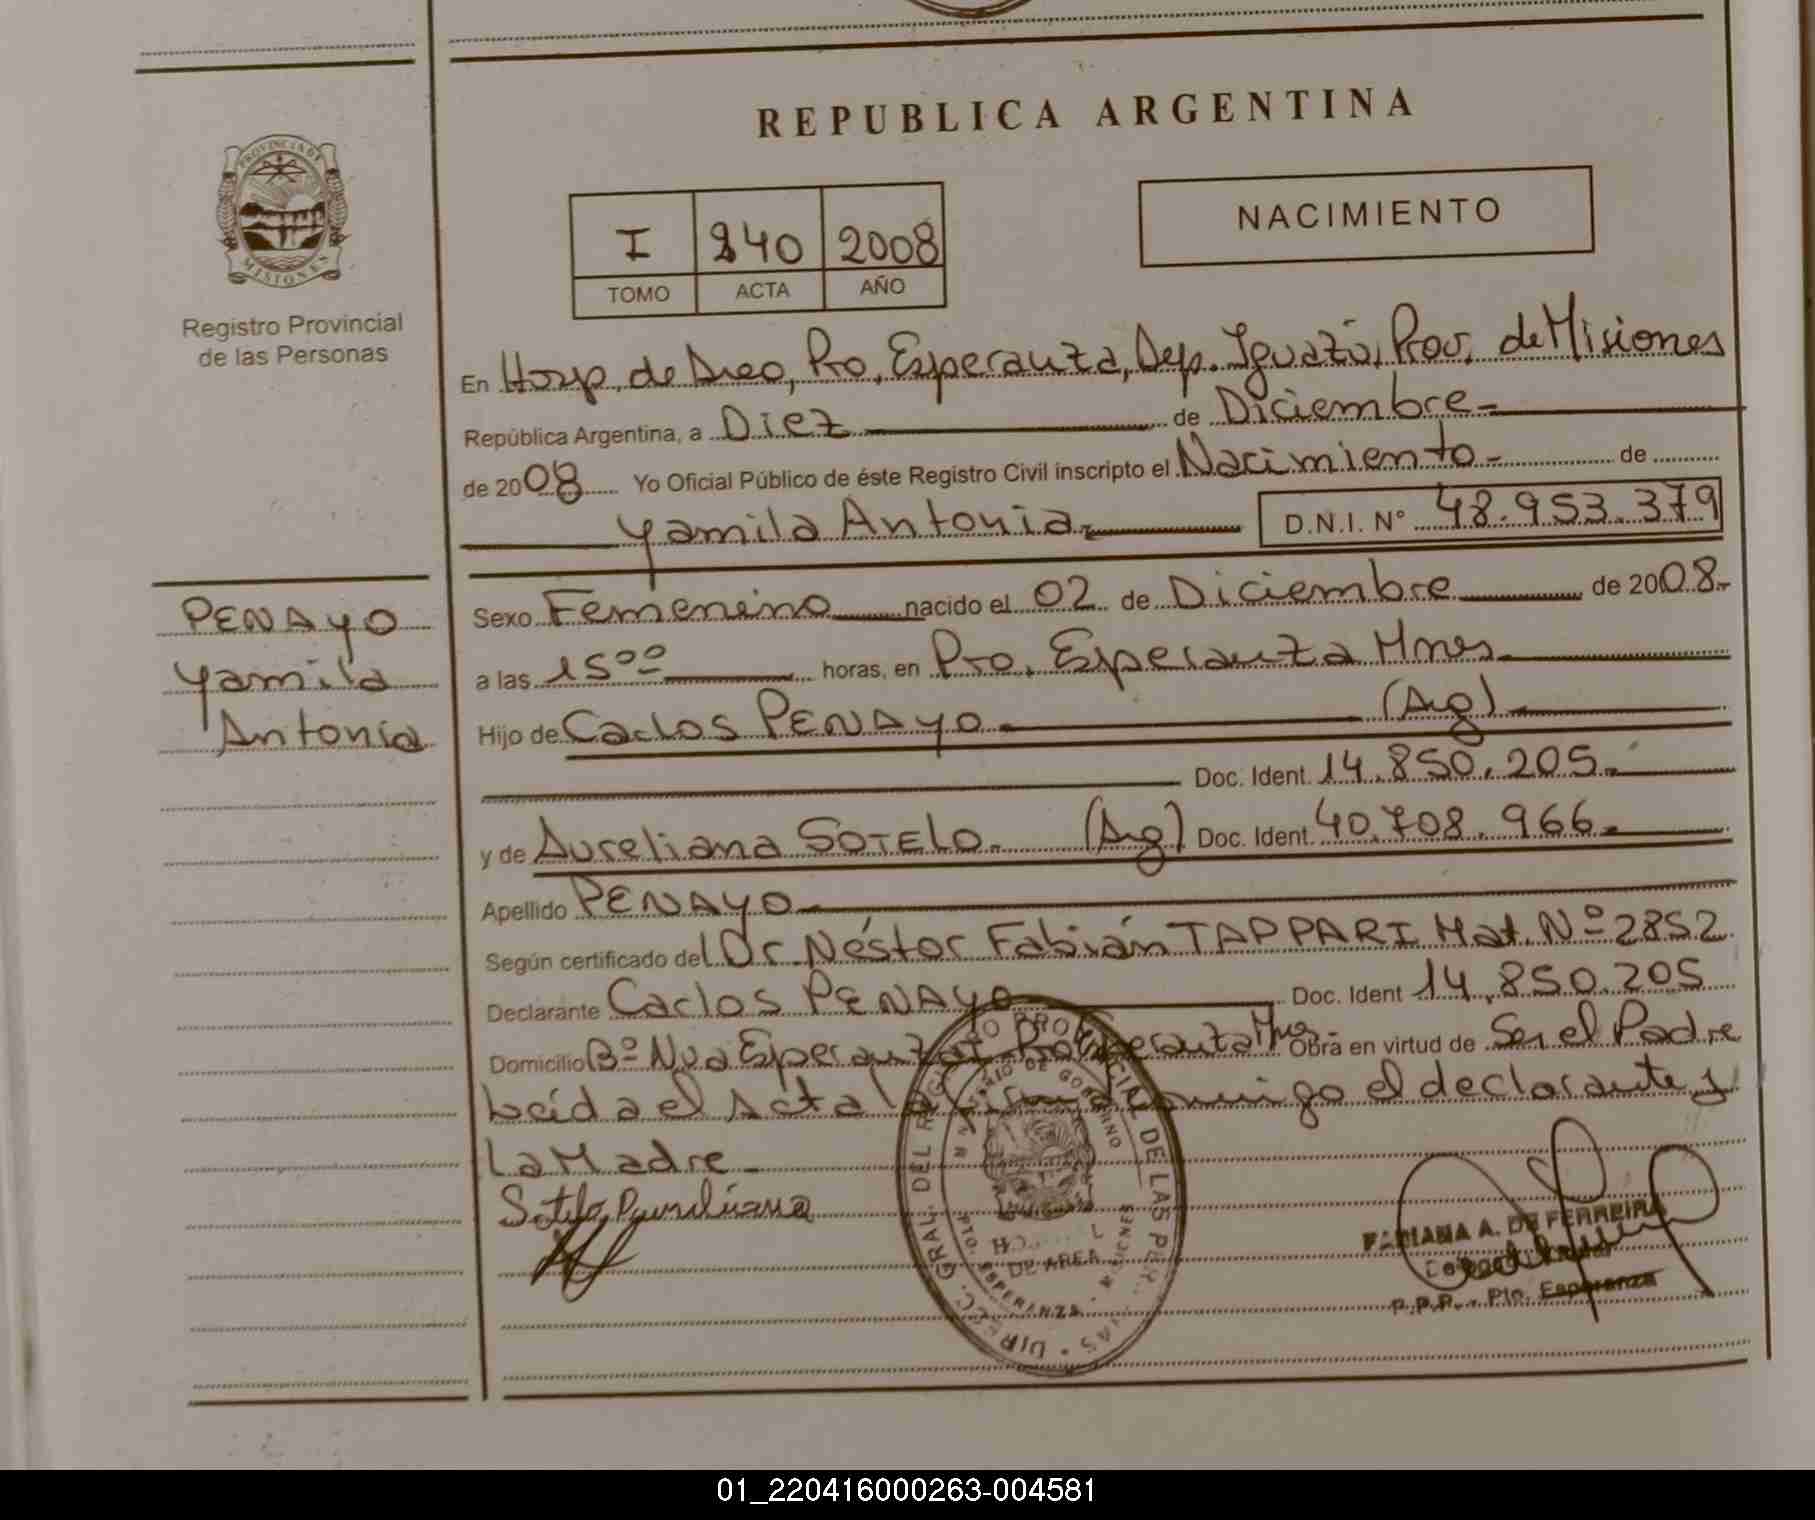 REPUBLICA ARGENTINA
PROVINCIA DE
MISIONES
Registro Provincial
de las Personas
I 240 2008
TOMO ACTA AÑO
NACIMIENTO
En Hosp. de Area, Pto. Esperanza, Dep. Iguazú, Prov. de Misiones
República Argentina, a Diez de Diciembre
de 2008 Yo Oficial Público de éste Registro Civil inscripto el Nacimiento de
Yamila Antonia D.N.I. Nº 48.953.379
PENAYO
Yamila
Antonia
Sexo Femenino nacido el 02 de Diciembre de 2008
a las 15ºº horas, en Pto. Esperanza Mnes
Hijo de Carlos PENAYO (Arg)
Doc. Ident. 14.850.205
y de Aureliana SOTELO (Arg) Doc. Ident. 40.708.966
Apellido PENAYO
Según certificado del Dr. Néstor Fabián TAPPARI Mat. Nº 2852
Declarante Carlos PENAYO Doc. Ident 14.850.205
Domicilio Bº Nva Esperanza Pto Esperanza Mnes Obra en virtud de Ser el Padre
Leída el Acta conmigo el declarante y
La Madre
Sotelo
DIRECC. GRAL. DEL REGISTRO PROVINCIAL DE LAS PERSONAS
MINISTERIO DE GOBIERNO
DE AREA
PTO. ESPERANZA - MISIONES
FABIANA A. DE FERREIRA
R.P.P. - Pto. Esperanza
01_220416000263-004581